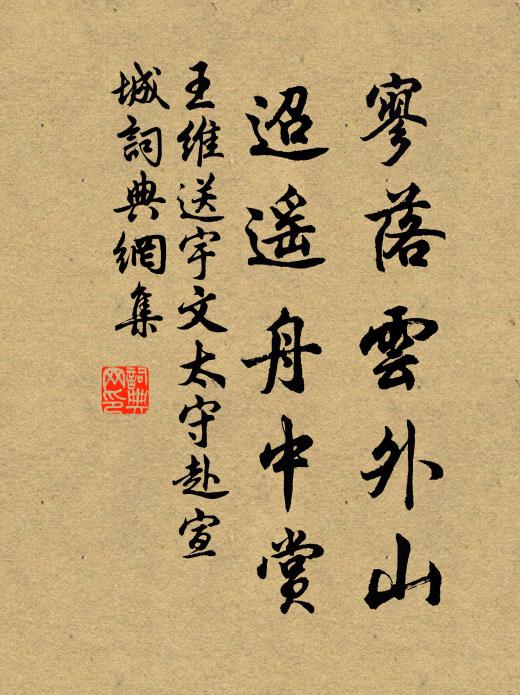 寥落雲外山
迢遥舟中賞
王維送宇文太守赴宣
城詞典網集
詞典網印